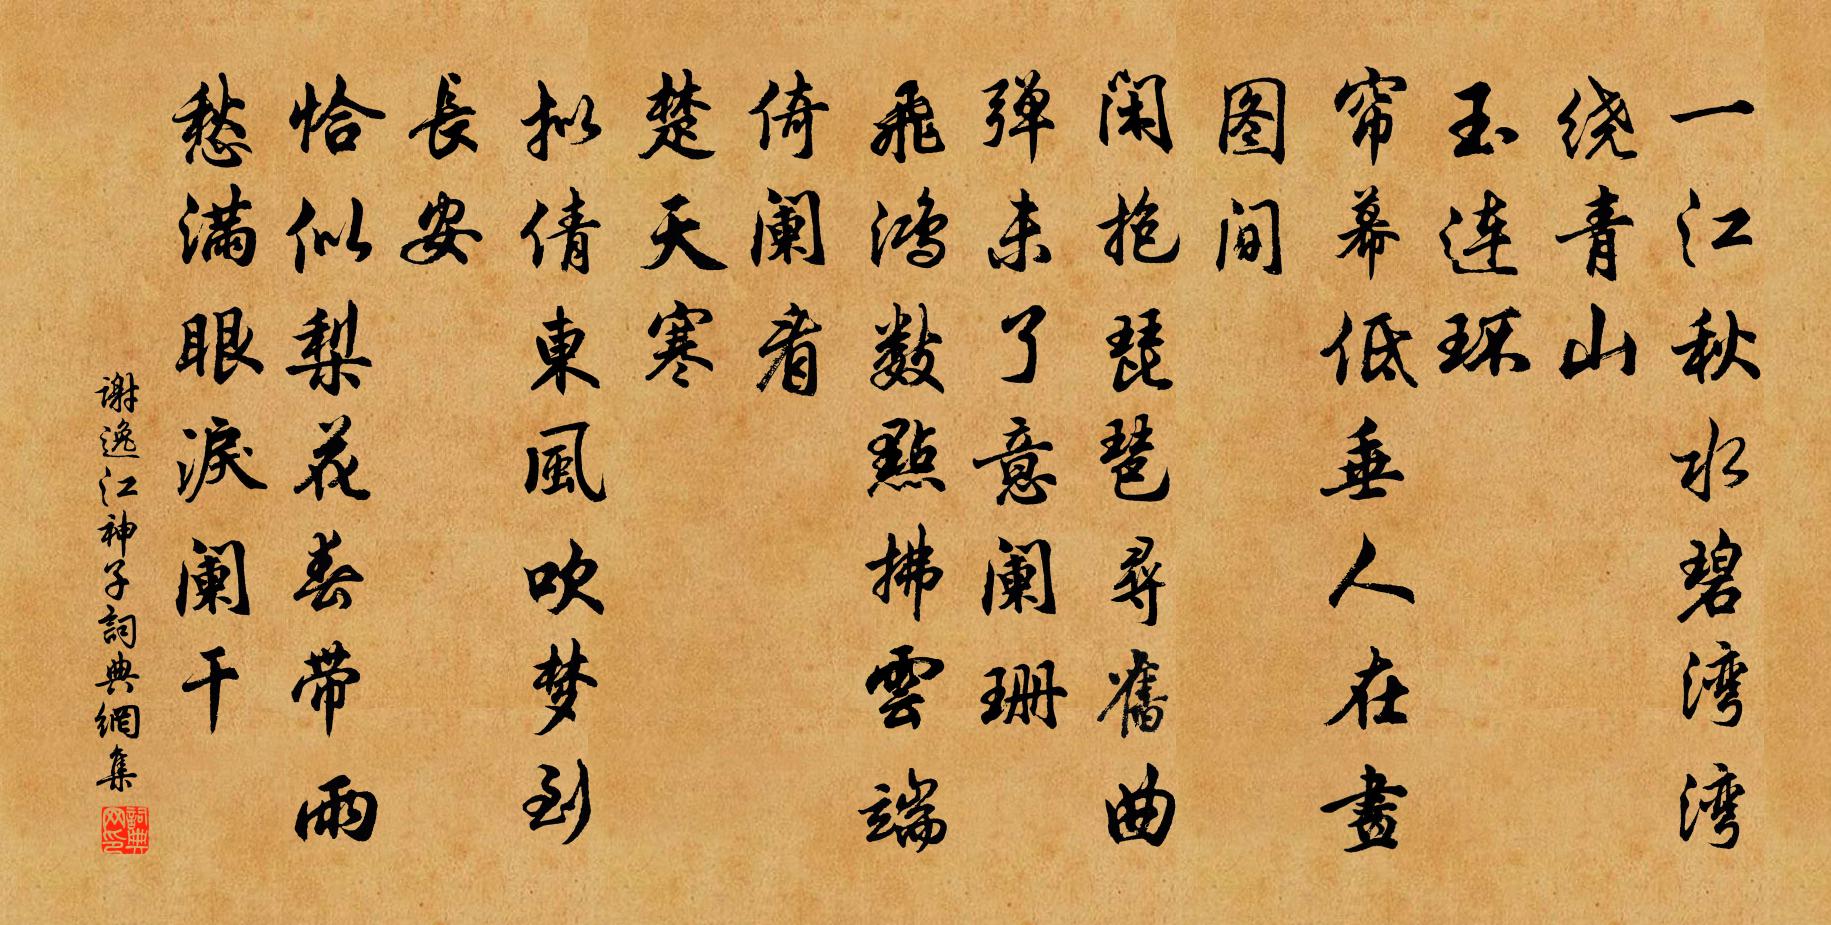 一江秋水碧湾湾
绕青山
玉连环
帘幕低垂人在畫
图间
闲抱琵琶尋舊曲
弹未了意阑珊
飛鸿數點拂雲端
倚阑看
楚天寒
拟倩東風吹梦到
長安
恰似梨花春带雨
愁满眼淚阑干
謝逸江神子詞典網集
詞典网印